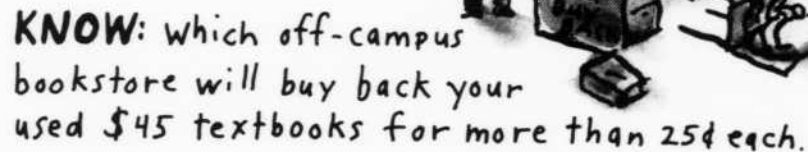 KNOW: which off-campus
bookstore will buy back your
used $45 textbooks for more than 25¢ each.